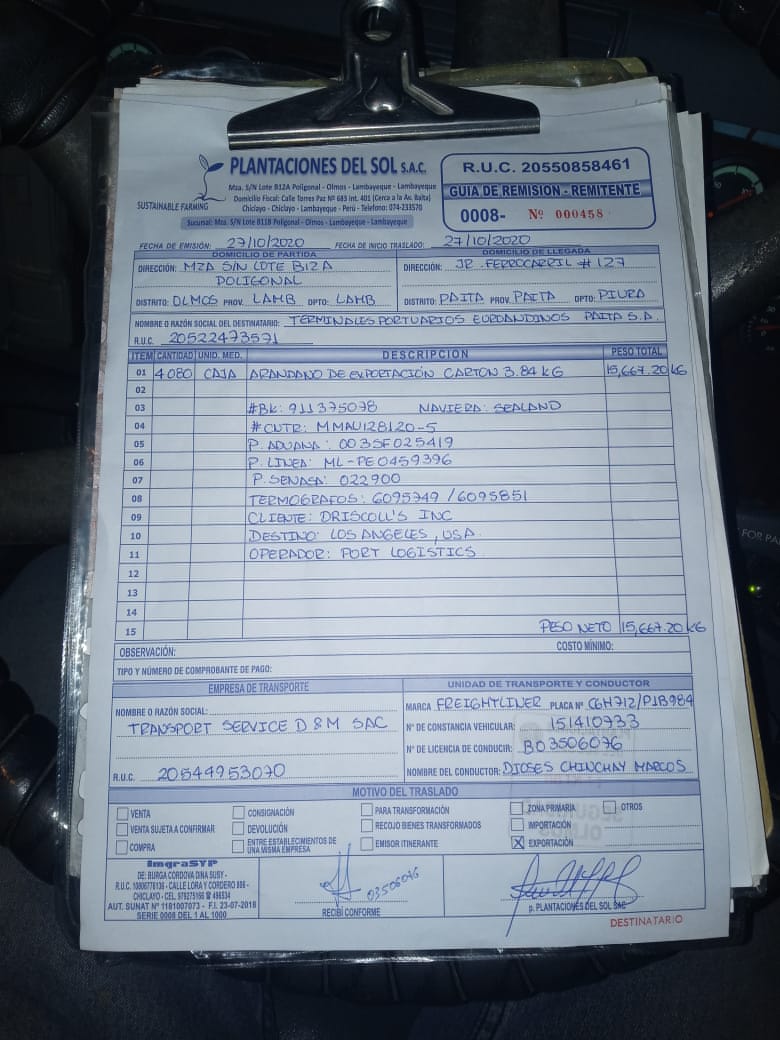 PLANTACIONES DEL SOL S.A.C.
Mza. S/N Lote B12A Poligonal - Olmos - Lambayeque - Lambayeque
Domicilio Fiscal: Calle Torres Paz Nº 683 Int. 401 (Cerca a la Av. Balta)
Chiclayo - Chiclayo - Lambayeque - Perú - Telefono: 074-233570
SUSTAINABLE FARMING
Sucursal: Mza. S/N Lote B11B Poligonal - Olmos - Lambayeque - Lambayeque
R.U.C. 20550858461
GUIA DE REMISION - REMITENTE
0008- Nº 000458
FECHA DE EMISIÓN: 27/10/2020 FECHA DE INICIO TRASLADO: 27/10/2020
DOMICILIO DE PARTIDA
DIRECCIÓN: MZA S/N LOTE B12A
POLIGONAL
DISTRITO: OLMOS PROV. LAMB DPTO: LAMB
DOMICILIO DE LLEGADA
DIRECCIÓN: JR FERROCARRIL # 127
DISTRITO: PAITA PROV. PAITA DPTO: PIURA
NOMBRE O RAZÓN SOCIAL DEL DESTINATARIO: TERMINALES PORTUARIOS EUROANDINOS PAITA S.A.
R.U.C. 20522473571
ITEM CANTIDAD UNID. MED. DESCRIPCION PESO TOTAL
01 4080 CAJA ARANDANO DE EXPORTACIÓN CARTON 3.84 KG 15,667.20 KG
02
03 #BK: 911375078 NAVIERA: SEALAND
04 #CNTR: MMAU128120-5
05 P. ADUANA: 003SF025419
06 P. LINEA: ML-PE0459396
07 P. SENASA: 022900
08 TERMOGRAFOS: 6095749 / 6095851
09 CLIENTE: DRISCOLL'S INC
10 DESTINO: LOS ANGELES, USA
11 OPERADOR: PORT LOGISTICS
12
13
14
15 PESO NETO 15,667.20 KG
OBSERVACIÓN: COSTO MÍNIMO:
TIPO Y NÚMERO DE COMPROBANTE DE PAGO:
EMPRESA DE TRANSPORTE
NOMBRE O RAZÓN SOCIAL:
TRANSPORT SERVICE D & M SAC
R.U.C. 20544953070
UNIDAD DE TRANSPORTE Y CONDUCTOR
MARCA FREIGHTLINER PLACA Nº C6H712/P1B984
Nº DE CONSTANCIA VEHICULAR: 151410733
Nº DE LICENCIA DE CONDUCIR: B03506076
NOMBRE DEL CONDUCTOR: DIOSES CHINCHAY MARCOS
MOTIVO DEL TRASLADO
VENTA CONSIGNACIÓN PARA TRANSFORMACIÓN ZONA PRIMARIA OTROS
VENTA SUJETA A CONFIRMAR DEVOLUCIÓN RECOJO BIENES TRANSFORMADOS IMPORTACIÓN
COMPRA ENTRE ESTABLECIMIENTOS DE UNA MISMA EMPRESA EMISOR ITINERANTE X EXPORTACIÓN
ImgraSYP
DE: BURGA CORDOVA DINA SUSY -
R.U.C. 10806778136 - CALLE LORA Y CORDERO 886 -
CHICLAYO - CEL. 979275166 # 496534
AUT. SUNAT Nº 1181007073 - F.I. 23-07-2018
SERIE 0008 DEL 1 AL 1000
03506076
RECIBÍ CONFORME
p. PLANTACIONES DEL SOL SAC
DESTINATARIO